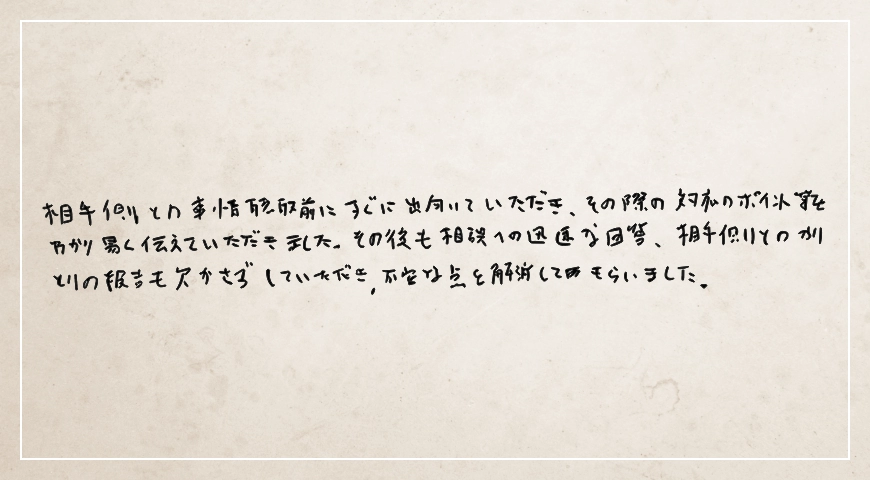 相手側との事情聴取前にすぐに出向いていただき、その際の対応のポイント等を
わかり易く伝えていただきました。その後も相談への迅速な回答、相手側とのやり
とりの報告も欠かさずしていただき、不安な点を解消してもらいました。